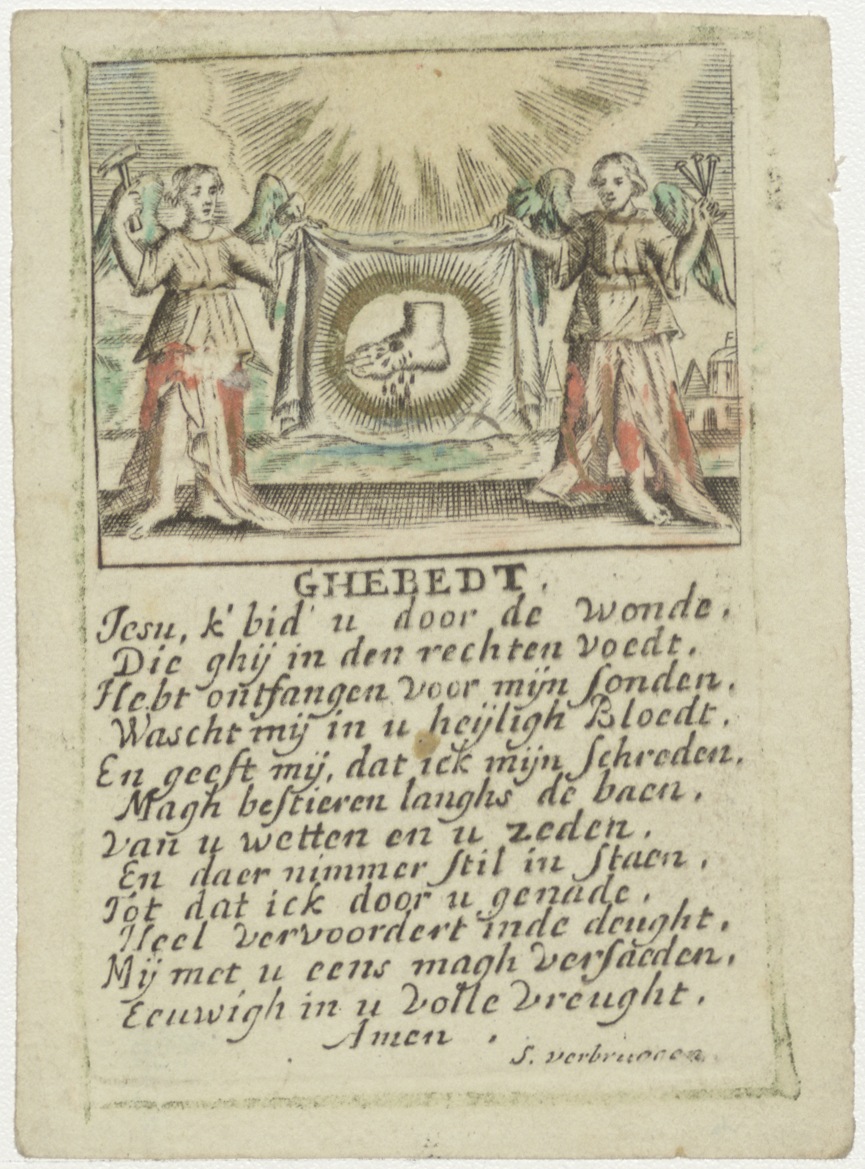 GHEBEDT.
Jesu, k' bid' u door de wonde,
Die ghij in den rechten voedt,
Hebt ontfangen voor mijn sonden,
Wascht mij in u heijligh Bloedt,
En geeft mij, dat ick mijn schreden,
Magh bestieren langhs de baen,
Van u wetten en u zeden,
En daer nimmer stil in staen,
Tot dat ick door u genade,
Heel vervoordert inde deught,
Mij met u eens magh versaeden,
Eeuwigh in u volle vreught.
Amen.
S. verbruggen